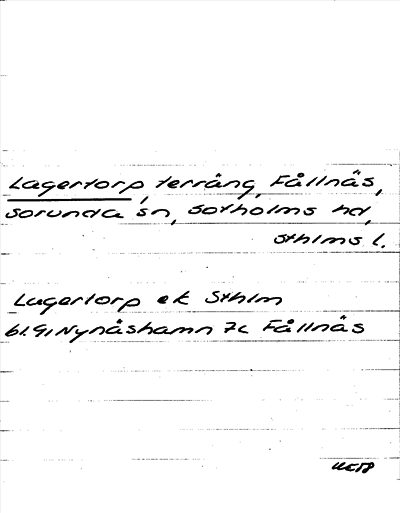 Lagertorp, terräng, Fållnäs,
Sorunda sn, Sotholms hd,
Sthlms l.
Lagertorp ek Sthlm
Nynäshamn 7c Fållnäs